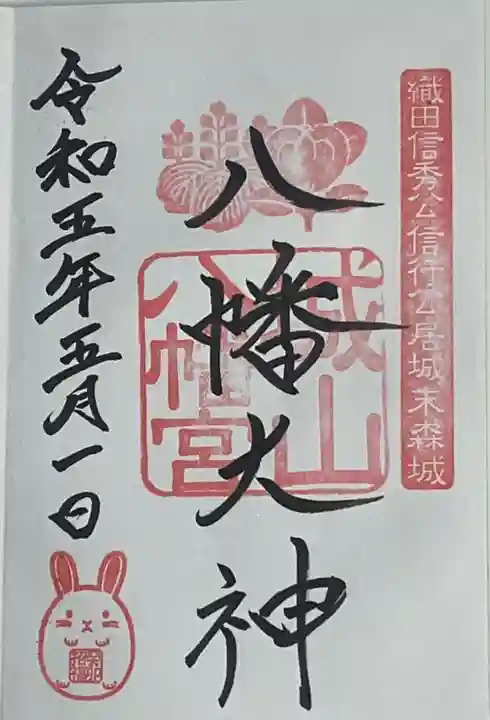 織田信秀公信行公居城末森城
八幡大神
城山
八幡宮
令和五年五月一日